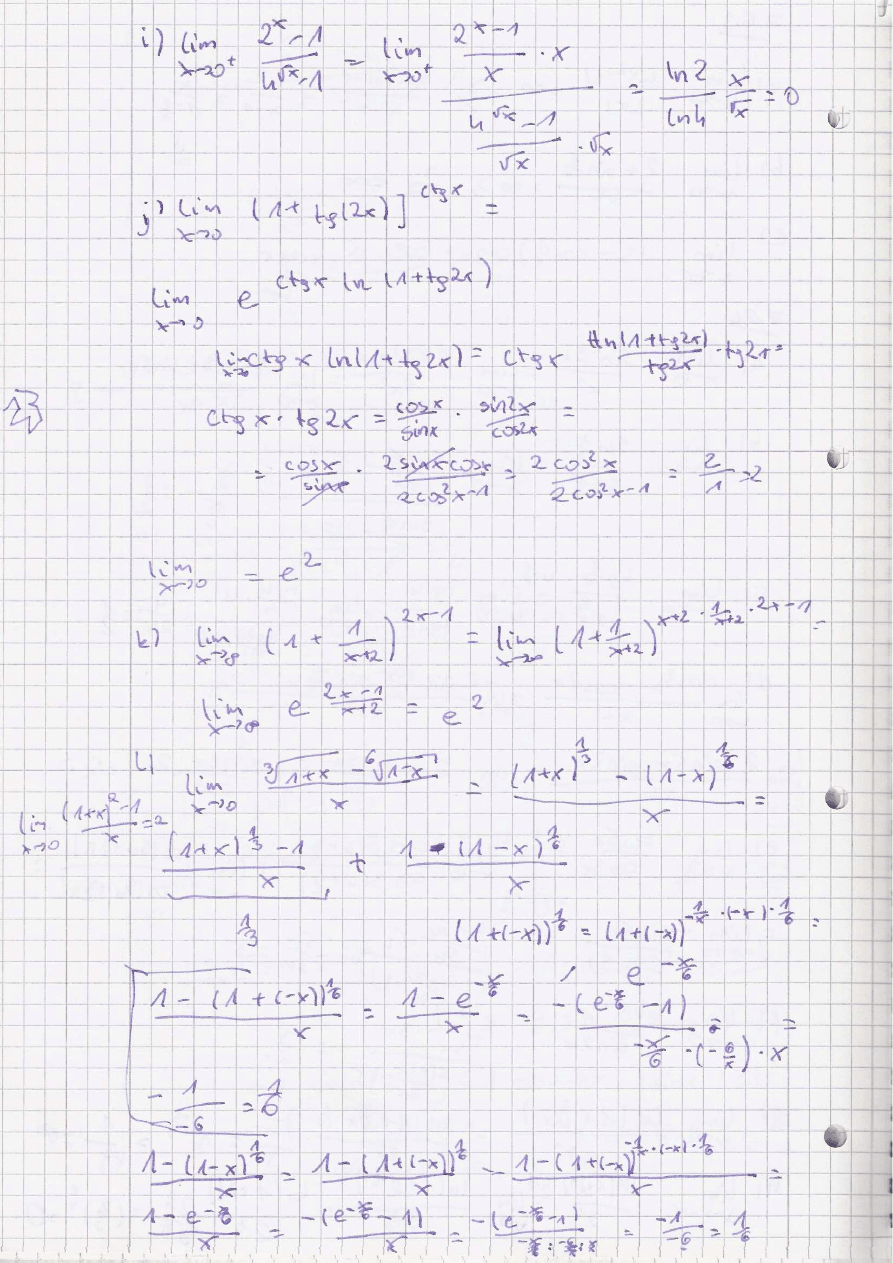 i) lim x→0⁺ (2^x - 1)/(4^√x - 1) = lim x→0⁺ ((2^x - 1)/x · x)/((4^√x - 1)/√x · √x) = ln2/ln4 x/√x = 0
j) lim x→0 (1 + tg(2x)]^ctgx =
lim x→0 e^(ctgx ln(1+tg2x))
lim x→0 ctgx ln(1+tg2x) = ctgx ln(1+tg2x)/tg2x · tg2x =
ctgx · tg2x = cosx/sinx · sin2x/cos2x =
= cosx/sinx · 2sinxcosx/(2cos²x-1) = 2cos²x/(2cos²x-1) = 2/1 = 2
lim x→0 = e²
k) lim x→∞ (1 + 1/(x+2))^(2x-1) = lim x→∞ (1 + 1/(x+2))^(x+2 · 1/(x+2) · 2x-1) =
lim x→∞ e^((2x-1)/(x+2)) = e²
l) lim x→0 (∛(1+x) - ⁶√(1-x))/x = ((1+x)^(1/3) - (1-x)^(1/6))/x =
lim x→0 ((1+x)² - 1)/x = 2
((1+x)^(1/3) - 1)/x + (1 - (1-x)^(1/6))/x
1/3
(1+(-x))^(1/6) = (1+(-x))^(-1/x · (-x) · 1/6) =
e^(-x/6)
(1 - (1+(-x))^(1/6))/x = (1 - e^(-x/6))/x = -(e^(-x/6) - 1)/(-x/6 · (-6/x) · x) =
- 1/-6 = 1/6
(1-(1-x)^(1/6))/x = (1-(1+(-x))^(1/6))/x = (1-(1+(-x))^(-1/x · (-x) · 1/6))/x =
(1-e^(-x/6))/x = -(e^(-x/6) - 1)/x = -(e^(-x/6) - 1)/ = -1/-6 = 1/6